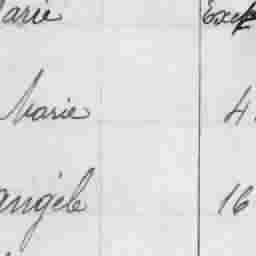 arie Exep
Marie 4
angèle 16